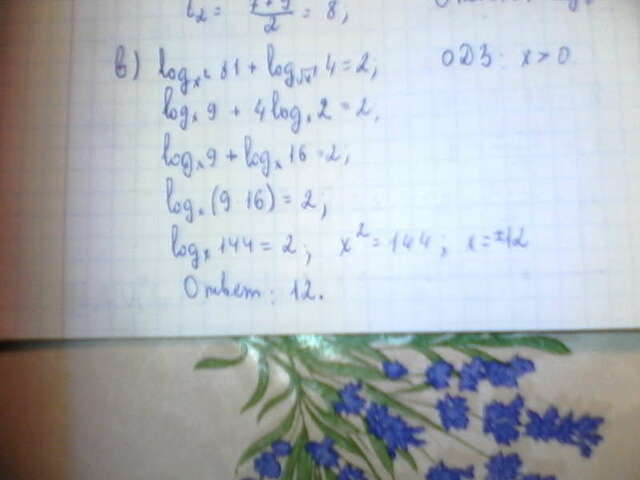 t₂ = (7+9)/2 = 8;
в) log_{x²} 81 + log_{√x} 4 = 2; ОДЗ: x > 0
log_x 9 + 4 log_x 2 = 2,
log_x 9 + log_x 16 = 2;
log_x (9·16) = 2;
log_x 144 = 2; x² = 144; x = ±12
Ответ: 12.